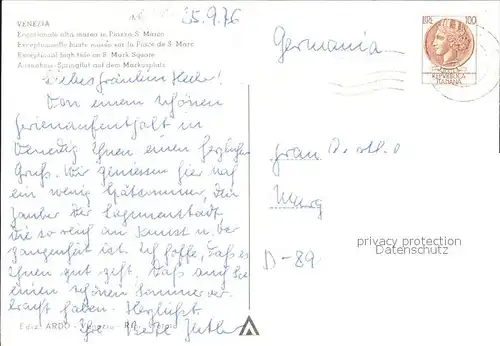 VENEZIA
Eccezionale alta marea in Piazza S. Marco
Exceptionnelle haute marée sur la Place de S. Marc
Exceptional high tide on S. Mark Square
Ausnahme-Springflut auf dem Markusplatz
25.9.76
Liebes Fräulein
Von einem schönen
Ferienaufenthalt in
Venedig Ihnen einen herzlichen
Gruß. Wir geniessen hier noch
ein wenig Spätsommer, den
Zauber der Lagunenstadt,
die so reich an Kunst u. Ver
gangenheit ist. Ich hoffe, daß es
Ihnen gut geht. Daß auch Sie
einen schönen Sommer ver
bracht haben. Herzlichst
Ihre
Ediz. ARDO - Venezia
Germania
LIRE 100
REPVBBLICA
ITALIANA
D-89
privacy protection
Datenschutz